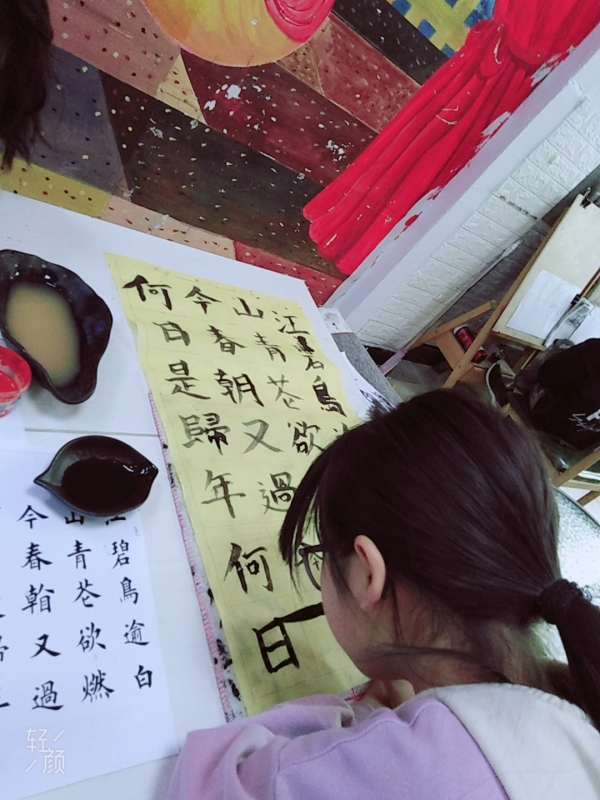 江碧鳥
山青花欲
今春朝又過
何日是歸年何日
碧鳥逾白
山青花欲燃
今春翰又過
轻颜